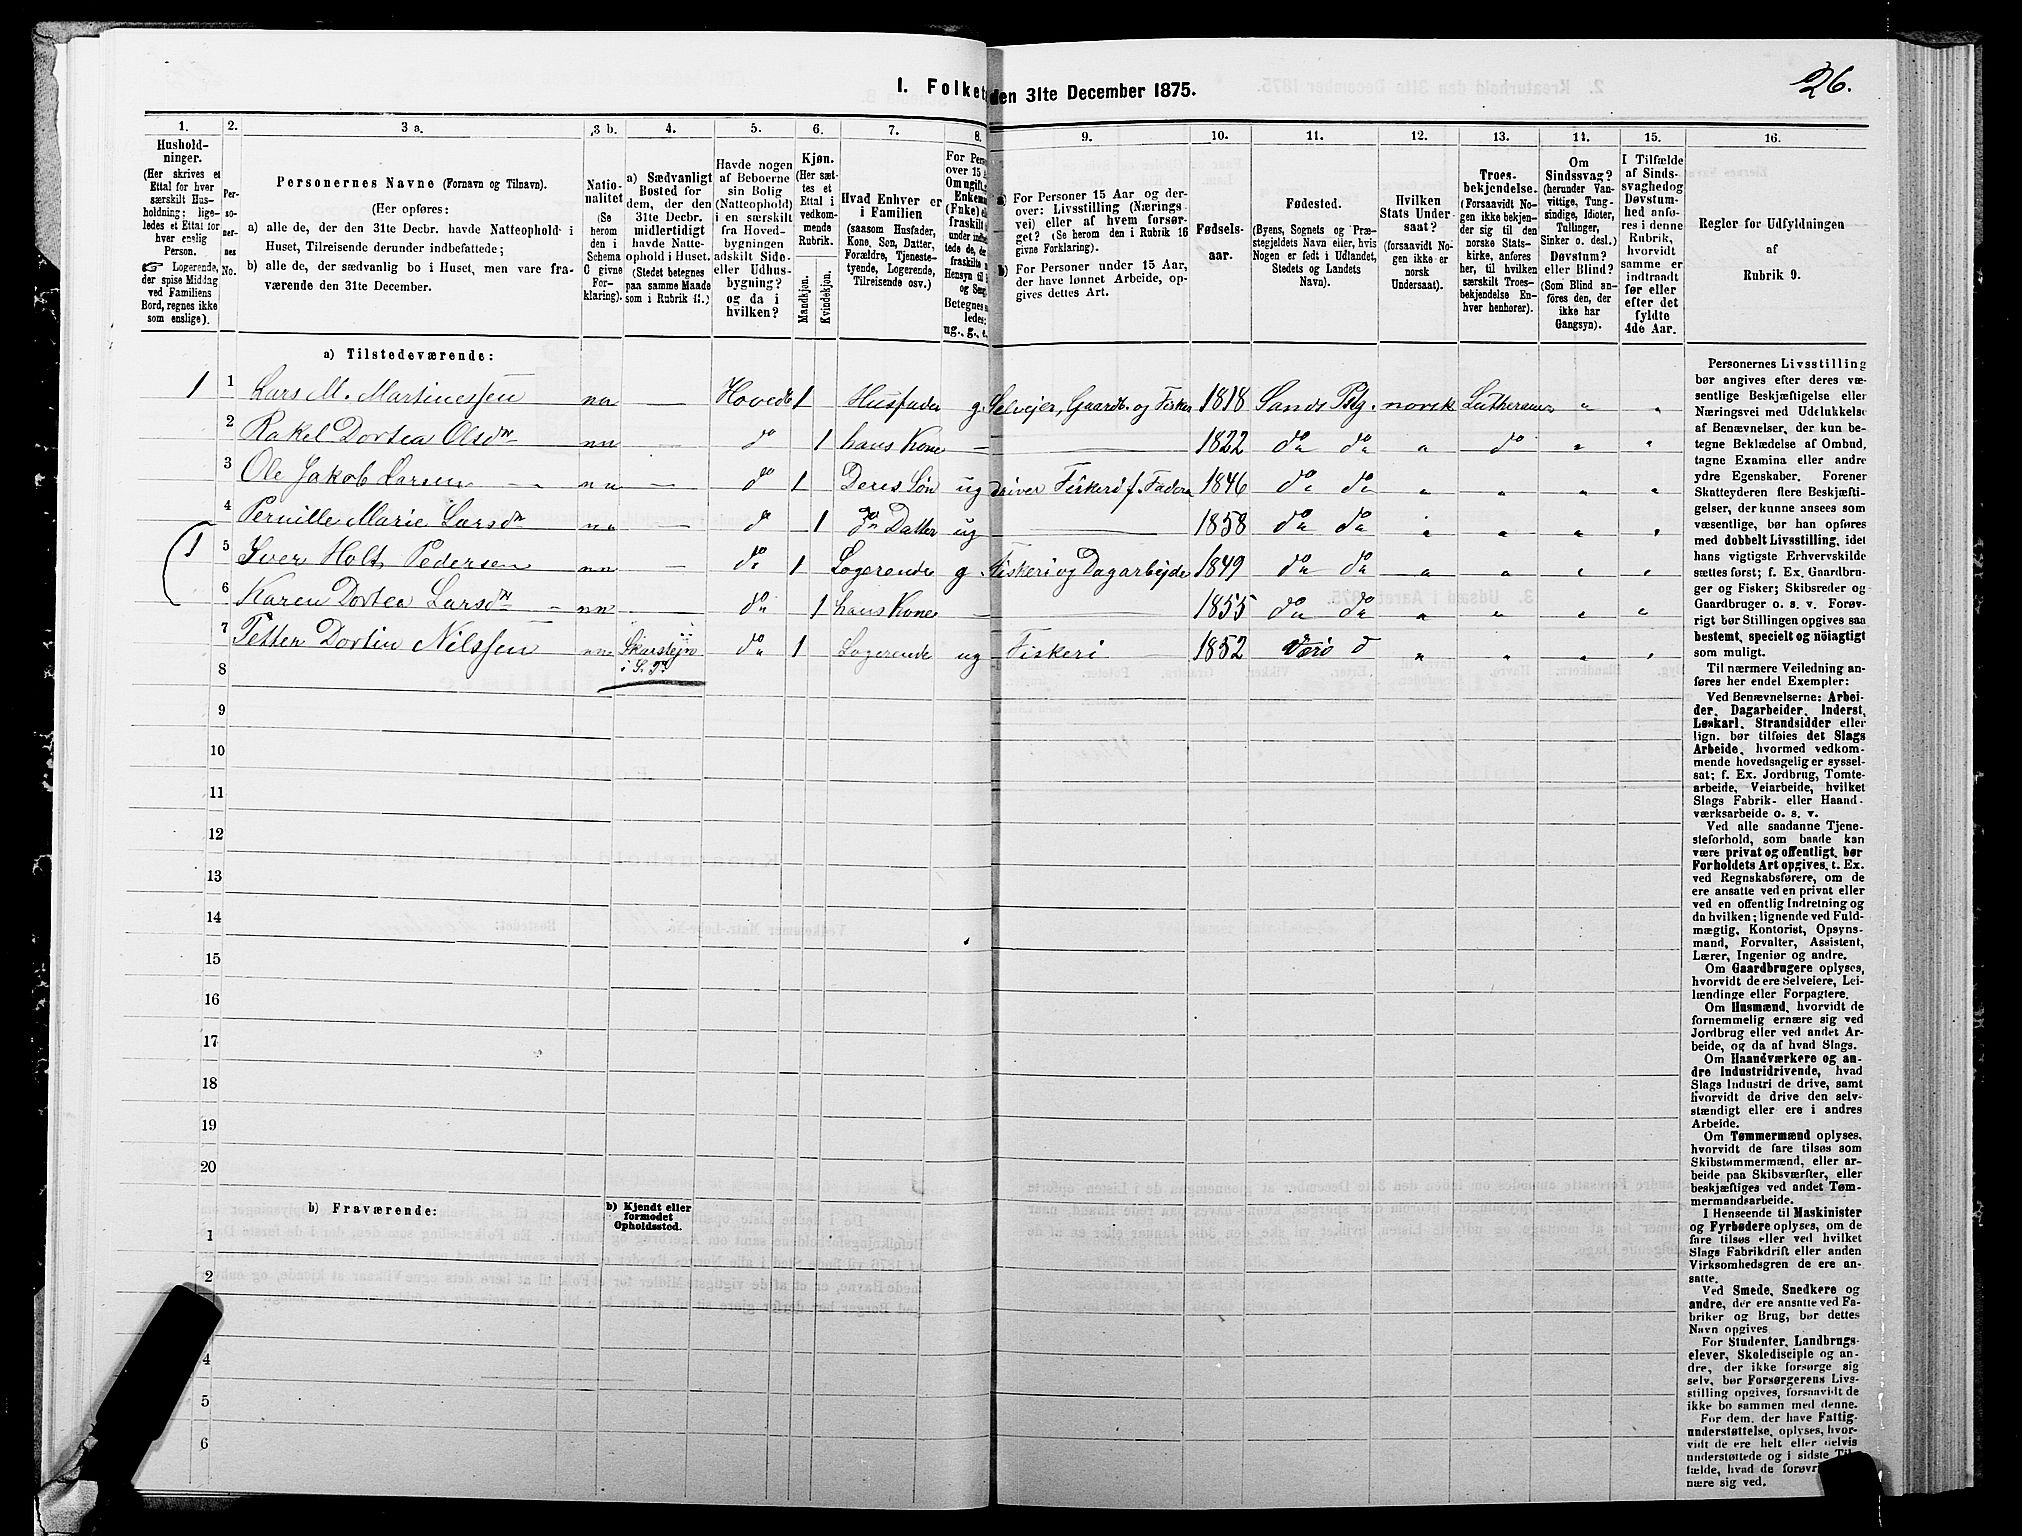 26.
I. Folket den 31te December 1875.
1. 2. 3 a. 3 b. 4. 5. 6. 7. 8. 9. 10. 11. 12. 13. 14. 15. 16.
Hushold-
ninger.
(Her skrives et
Ettal for hver
særskilt Hus-
holdning; lige-
ledes et Ettal
for hver
enslig
Person.
Logerende,
der spise Middag
ved Familiens
Bord, regnes ikke
som enslige).
Per-
so-
ner-
nes
No.
Personernes Navne (Fornavn og Tilnavn).
(Her opføres:
a) alle de, der den 31te Decbr. havde Natteophold i
Huset, Tilreisende derunder indbefattede;
b) alle de, der sædvanlig bo i Huset, men vare fra-
værende den 31te December.
Natio-
nalitet
(Se
herom
den i
Schema
C givne
For-
klaring).
a) Sædvanligt
Bosted for
dem, der den
31te Decbr.
midlertidigt
havde Natte-
ophold i Huset.
(Stedet betegnes
paa samme Maade
som i Rubrik 11.)
Havde nogen
af Beboerne
sin Bolig
(Natteophold)
i en særskilt
fra Hoved-
bygningen
adskilt Side-
eller Udhus-
bygning?
og da i
hvilken?
Kjøn.
(Her sæt-
tes et
Ettal i
vedkom-
mende
Rubrik.
Mandkjøn.
Kvindekjøn.
Hvad Enhver er
i Familien
(saasom Husfader,
Kone, Søn, Datter,
Forældre, Tjeneste-
tyende, Logerende,
Tilreisende osv.)
a) For Personer 15 Aar og der-
over: Livsstilling (Nærings-
vei) eller af hvem forsør-
get? (Se herom den i Rubrik 16
givne Forklaring).
b) For Personer under 15 Aar,
der have lønnet Arbeide, op-
gives dettes Art.
Fødsels-
aar.
Fødested.
(Byens, Sognets og Præ-
stegjeldets Navn eller, hvis
Nogen er født i Udlandet,
Stedets og Landets
Navn).
Hvilken
Stats Under-
saat?
(forsaavidt No-
gen ikke er
norsk
Undersaat).
Troes-
bekjendelse.
(Forsaavidt No-
gen ikke bekjen-
der sig til den
norske Stats-
kirke, anføres
her, til hvilken
særskilt Troes-
bekjendelse En-
hver henhører).
Om
Sindssvag?
(herunder Van-
vittige, Tung-
sindige, Idioter,
Tullinger,
Sinker o. desl.)
Døvstum?
eller Blind?
(Som Blind an-
føres den, der
ikke har
Gangsyn).
I Tilfælde
af Sinds-
svaghed og
Døvstum-
hed anfø-
res i denne
Rubrik,
hvorvidt
samme er
indtraadt
før eller
efter det
fyldte
4de Aar.
Regler for Udfyldningen
af
Rubrik 9.
a) Tilstedeværende:
1 1 Lars M. Martinessen no Hovedb 1 Husfader g. Selveier, Gaardb. og Fisker 1818 Sands Pstg. norsk Lutheraner
2 Rakel Dortea Olsdr no — do 1 hans Kone — 1822 do do do
3 Ole Jakob Larsen no — do 1 Deres Søn ug driver Fiskeri f. Fadern 1846 do do
4 Pernille Marie Larsdr no — do 1 do Datter ug 1858 do do
1 5 Iver Holt Pedersen no — do 1 Logerende g. Fiskeri og Dagarbejde 1849 do do
6 Karen Dortea Larsdr no — do 1 hans Kone — 1855 do do
7 Petter Dortin Nilssen no Skarstejn do 1 Logerende ug Fiskeri 1852 Værø do
8
9
10
11
12
13
14
15
16
17
18
19
20
b) Fraværende:
b) Kjendt eller
formodet
Opholdssted.
1
2
4
5
6
Personernes Livsstilling
bør angives efter deres væ-
sentlige Beskjæftigelse eller
Næringsvei med Udelukkelse
af Benævnelser, der kun be-
tegne Beklædelse af Ombud,
tagne Examina eller andre
ydre Egenskaber. Forener
Skatteyderen flere Beskjæfti-
gelser, der kunne ansees som
væsentlige, bør han opføres
med dobbelt Livsstilling, idet
hans vigtigste Erhvervskilde
sættes først; f. Ex. Gaardbru-
ger og Fisker; Skibsreder og
Gaardbruger o. s. v. Forøv-
rigt bør Stillingen opgives saa
bestemt, specielt og nöiagtigt
som muligt.
Til nærmere Veiledning an-
føres her endel Exempler:
Ved Benævnelserne: Arbei-
der, Dagarbeider, Inderst,
Løskarl, Strandsidder eller
lign. bør tilføies det Slags
Arbeide, hvormed vedkom-
mende hovedsagelig er syssel-
sat; f. Ex. Jordbrug, Tomte-
arbeide, Veiarbeide, hvilket
Slags Fabrik- eller Haand-
værksarbeide o. s. v.
Ved alle saadanne Tjene-
steforhold, som baade kan
være privat og offentligt, bør
Forholdets Art opgives, t. Ex.
ved Regnskabsførere, om de
ere ansatte ved en privat eller
ved en offentlig Indretning og
da hvilken; lignende ved Fuld-
mægtig, Kontorist, Opsyns-
mand, Forvalter, Assistent,
Lærer, Ingeniør og andre.
Om Gaardbrugere oplyses,
hvorvidt de ere Selveiere, Lei-
lændinge eller Forpagtere.
Om Husmænd, hvorvidt de
fornemmelig ernære sig ved
Jordbrug eller ved andet Ar-
beide, og da af hvad Slags.
Om Haandværkere og an-
dre Industridrivende, hvad
Slags Industri de drive, samt
hvorvidt de drive den selv-
stændigt eller ere i andres
Arbeide.
Om Tømmermænd oplyses,
hvorvidt de fare tilsøs som
Skibstømmermænd, eller ar-
beide paa Skibsværfter, eller
beskjæftiges ved andet Tøm-
mermandsarbeide.
I Henseende til Maskinister
og Fyrbødere oplyses, om de
fare tilsøs eller ved hvilket
Slags Fabrikdrift eller anden
Virksomhedsgren de ere an-
satte.
Ved Smede, Snedkere og
andre, der ere ansatte ved Fa-
briker og Brug, bør dettes
Navn opgives
For Studenter, Landbrugs-
elever, Skoledisciple og an-
dre, der ikke forsørge sig
selv, bør Forsørgerens Livs-
stilling opgives, forsaavidt de
ikke bo sammen med denne.
For dem, der have Fattig-
understøttelse, oplyses, hvor-
vidt de ere helt eller delvis
understøttede og i sidste Til-
fælde, hvad de forøvr
nære sig ved.